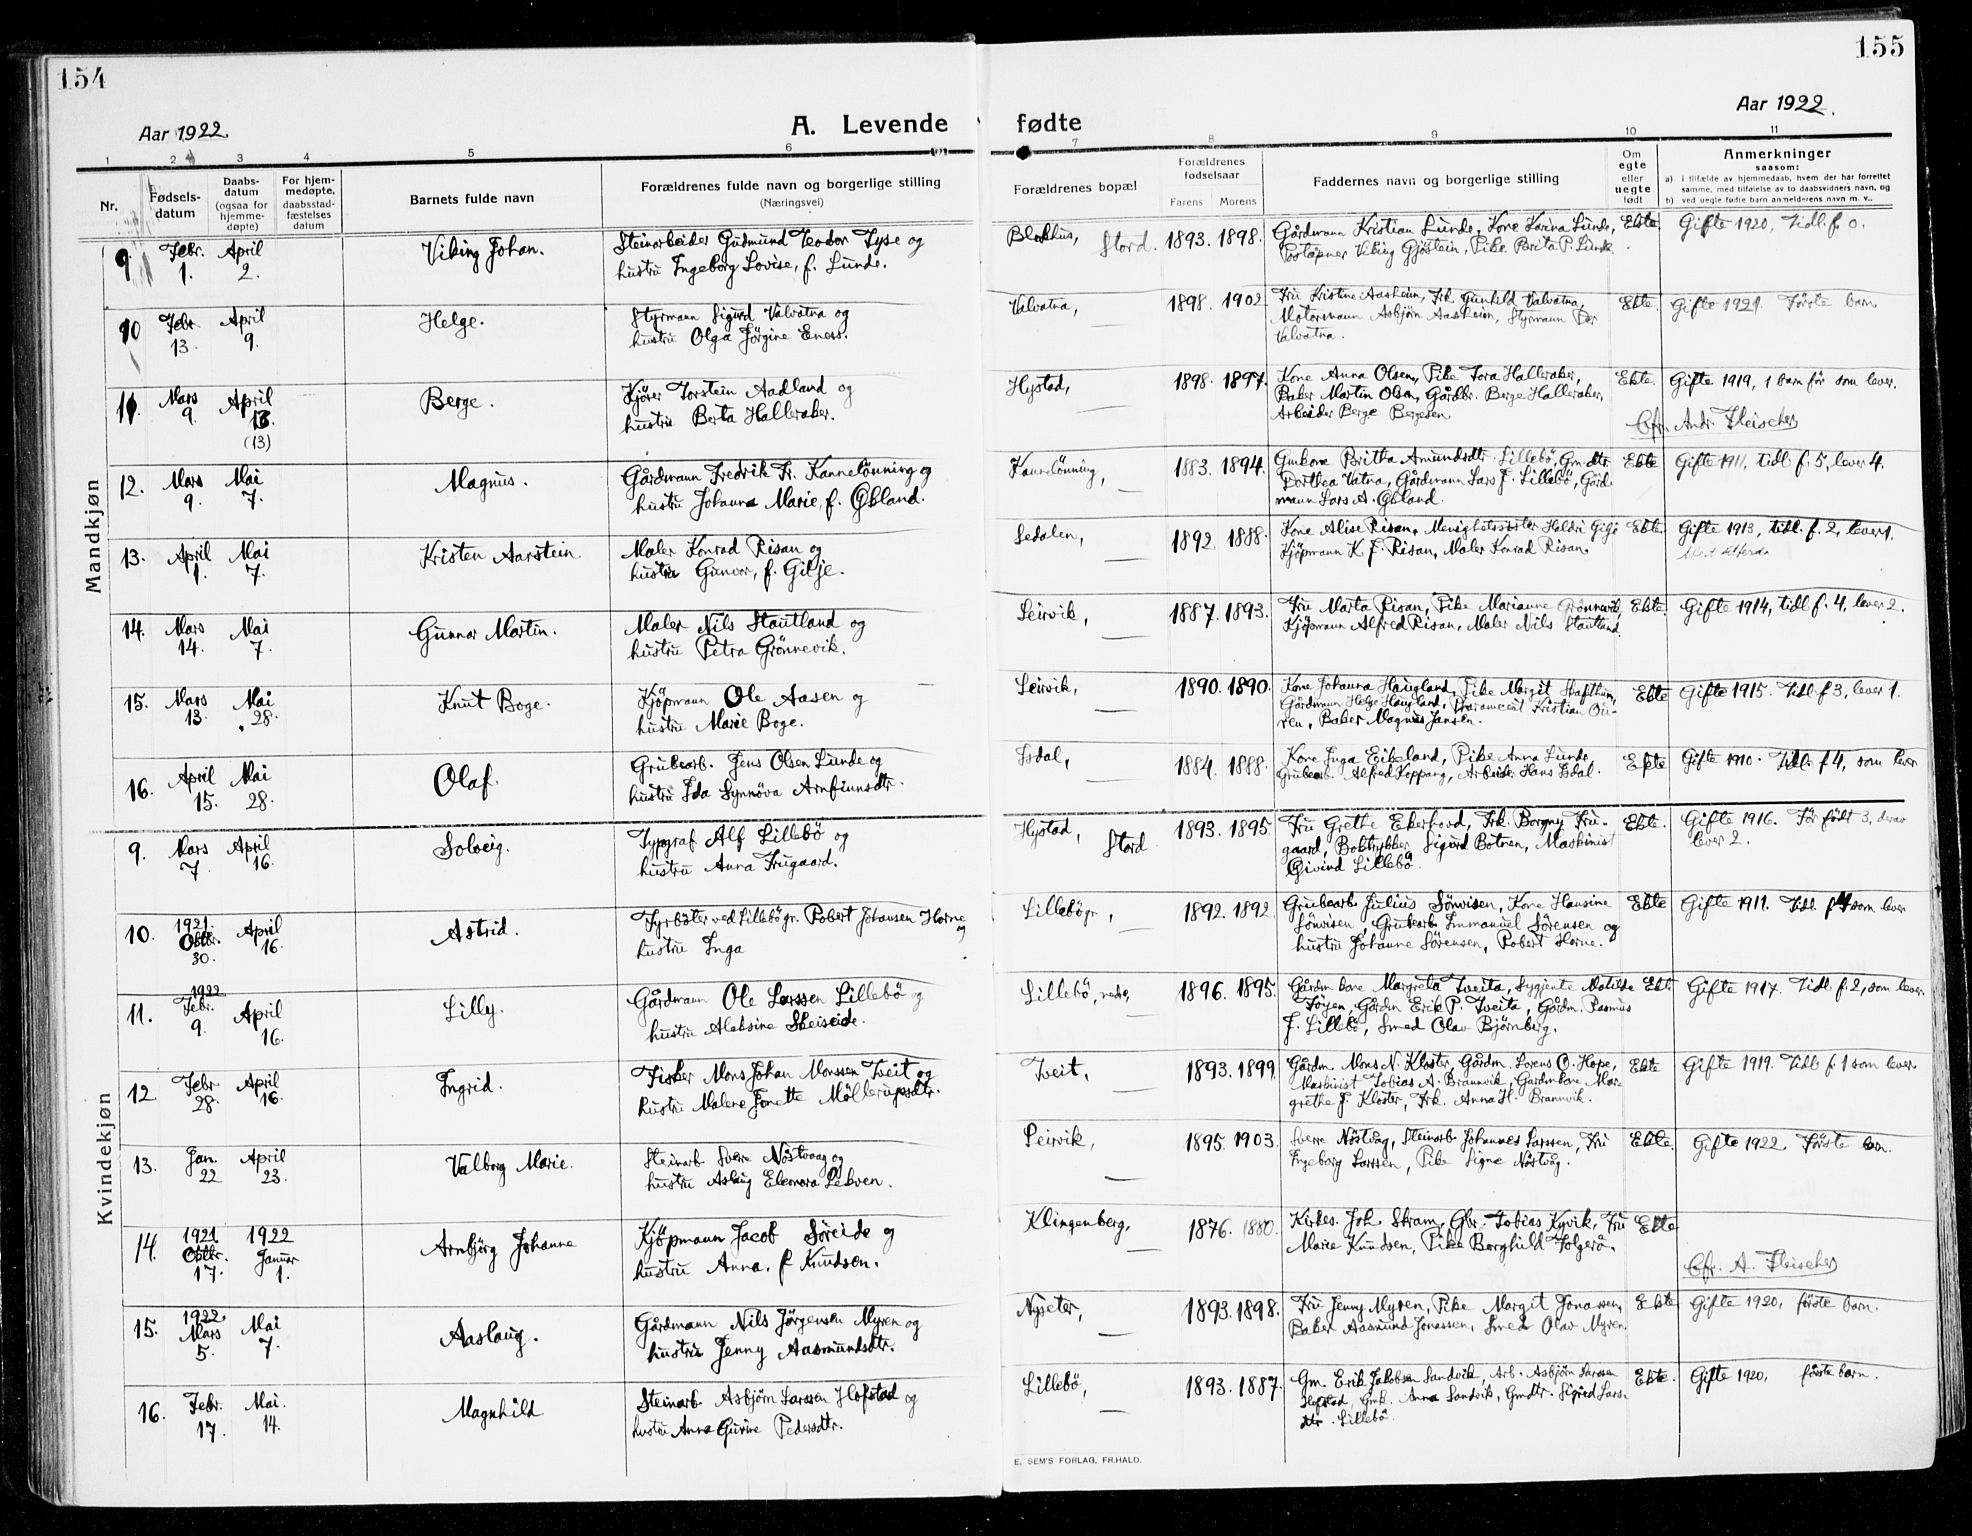 154
155
Aar 1922.
A. Levende fødte
Aar 1922.
1 2 3 4 5 6 7 8 9 10 11
Nr.
Fødsels-
datum
Daabs-
datum
(ogsaa for
hjemme-
døpte)
For hjem-
medøpte,
daabsstad-
fæstelses
datum
Barnets fulde navn
Forældrenes fulde navn og borgerlige stilling
(Næringsvei)
Forældrenes bopæl
Forældrenes
fødselsaar
Farens Morens
Faddernes navn og borgerlige stilling
Om
egte
eller
uegte
født
Anmerkninger
saasom:
a) i tilfælde av hjemmedaab, hvem der har forrettet
samme, med tilføielse av to daabsvidners navn, og
b) ved uegte fødte barn anmelderens navn m. v..
Mandkjøn
9. Febr. 1. April 2. Viking Johan.
Steinarbeider Gudmund Teodor Tyse og
hustru Ingeborg Lovise, f. Lunde.
Blokhus, Stord. 1893. 1898.
Gårdmann Kristian Lunde, Kone Karina Lunde,
Postopner Viking Gjøstein, Pike Brita P. Lunde.
Ekte. Gifte 1920, Tidl. f. 0.
10 Febr. 13. April 9. Helge.
Styrmann Sigurd Valvatna og
hustru Olga Jörgine Eners.
Valvatna, — 1898. 1902
Fru Kristine Aasheim, Frk. Gunhild Valvatna,
Motormann Asbjørn Aasheim, Styrmann Per
Valvatna.
Ekte. Gifte 1921. Første barn
11. Mars 9 April 13. (13) Berge.
Kjører Torstein Aadland og
hustru Berta Halleraker.
Hystad, — 1898. 1897.
Kone Anna Olsen, Pike Tora Halleraker,
Baker Martin Olsen, Gårdbr. Berge Halleraker,
Arbeider Berge Bergesen.
Ekte. Gifte 1919, 1 barn før som lever.
Cfr. Andr. Fleischer
12. Mars 9. Mai 7. Magnus.
Gårdmann Fredrik Fr. Kannelönning og
hustru Johanna Marie, f. Økland.
Kannelönning, — 1883. 1894.
Gmkone Britha Amundsdtr. Lillebö, Gm.dtr.
Dorthea Vatna, Gårdmann Lars J. Lillebö, Gård
mann Lars A. Økland.
Ekte Gifte 1911, tidl f. 5, lever 4.
13. April 1. Mai 7. Kristen Aarstein
Maler Konrad Risan og
hustru Gunvor, f. Gilje.
Sedalen, — 1892 1888.
Kone Alise Risan, Menighetssöster Haldri Gilje
Kjöpmann K. J. Risan, Maler Konrad Risan.
Ekte Gifte 1913, tidl. f. 2, lever 1.
14. Mars 14. Mai 7. Gunnar Martin.
Maler Nils Stautland og
hustru Petra Grönnevik.
Leirvik, — 1887. 1893.
Fru Marta Risan, Pike Marianne Grönnevik,
Kjöpmann Alfred Risan, Maler Nils Stautland.
Ekte. Gifte 1914, tidl f. 4, lever 2.
15. Mars 13. Mai 28. Knut Boge.
Kjöpmann Ole Aasen og
hustru Marie Boge.
Leirvik, 1890. 1890.
Kone Johanna Haugland, Pike Margit Hafthun,
Gårdmann Helge Haugland, Provament Kristian Ou-
ren, Baker Magnus Jansen.
Ekte Gifte 1915. Tidl. f. 3, lever 1.
16. April 15. Mai 28. Olaf.
Grubearb. Jens Olsen Lunde og
hustru Ida Synnöva Arnfinnsdtr.
Isdal, — 1884. 1888.
Kone Inga Eikeland, Pike Anna Lunde,
Grubearb. Alfred Koppang, Arbeider Hans Isdal.
Ekte Gifte 1910. Tidl. f 4, som lever
Kvindekjøn
9. Mars 7. April 16. Solveig.
Typograf Alf Lillebö og
hustru Anna Frugaard.
Hystad, Stord 1893. 1895.
Fru Grethe Ekerhovd, Frk. Borgny Fru-
gaard, Boktrykker Sigurd Botnen, Maskinist
Öivind Lillebö
Ekte. Gifte 1916. Før født 3, derav
lever 2.
10. 1921. Oktbr. 30. April 16. Astrid.
Fyrböter ved Lillebö gr. Robert Johansen Horne og
hustru Inga
Lillebö gr, — 1892. 1892.
Grubearb. Julius Sönvisen, Kone Hansine
Sönvisen, Grubearb. Immanuel Sörensen og
hustru Johanne Sörensen, Robert Horne.
Ekte Gifte 1911. Tidl. f 4 som lever
11. 1922 Febr. 9. April 16. Lilly.
Gårdmann Ole Larssen Lillebö og
hustru Aleksine Skeiseide.
Lillebö, nedre, — 1896. 1895.
Gårdm. kone Margreta Tveita, Sygepente Matilde
Föyen, Gårdm Erik P. Tveita, Gårdm. Rasmus
J. Lillebö, Smed Olav Björnberg.
Ekte Gifte 1917. Tidl. f. 2, som lever.
12 Febr. 28. April 16. Ingrid.
Fisker Mons Johan Monssen Tveit og
hustru Malene Jonette Möllerupsdtr.
Tveit, — 1893. 1899.
Gårdm. Mons N. Kloster, Gårdm. Lorens O. Hope,
Maskinist Tobias A. Brannvik, Gårdmkone Mar-
grethe J. Kloster, Frk. Anna H. Brannvik.
Ekte Gifte 1919. Tidl f. 1 som lever
13. Jan. 22 April 23. Valborg Marie.
Steinarb Sverre Nöstvaag og
hustru Aslaug Eleonora Lekven.
Leirvik, — 1895. 1903.
Sverre Nöstvåg, Steinarb Johannes Larssen, Fru
Ingeborg Larssen, Pike Signe Nöstvåg.
Ekte. Gifte 1922. Første barn.
14. 1921 Oktbr. 17. 1922 Januar 1. Arnbjörg Johanne
Kjöpmann Jacob Söreide og
hustru Anna, f. Knudsen.
Klingenberg, — 1876. 1880.
Kirkes. Joh. Stram, Gbr. Tobias Kyvik, Fru
Marie Knudsen, Pike Borghild Folgerö.
Ekte
Cfr. A. Fleischer
15. 1922. Mars 5. Mai 7. Aaslaug.
Gårdmann Nils Jørgensen Myren og
hustru Jenny Aasmundsdtr.
Nyseter, — 1893. 1898.
Fru Jenny Myren, Pike Margit Jonassen,
Baker Aasmund Jonassen, Smed Olav Myren
Ekte Gifte 1920, første barn.
16. Febr. 17. Mai. 14. Magnhild
Steinarb. Asbjørn Larssen Hofstad og
hustru Anna Gurine Pedersdtr.
Lillebö, — 1893. 1887.
Gm. Erik Jakobsen Sandvik, Arb. Asbjörn Larssen
Hofstad, Gmk. Anna Sandvik, Gmdtr. Sigrid Lars-
dtr. Lillebö.
Ekte. Gifte 1920, første barn.
E. SEM'S FORLAG, FR.HALD.